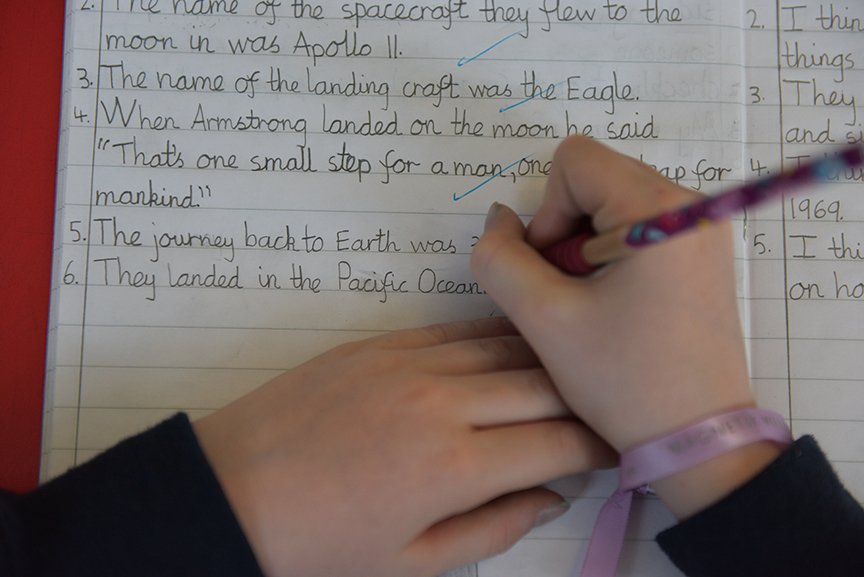 2. The name of the spacecraft they flew to the
moon in was Apollo 11.
3. The name of the landing craft was the Eagle.
4. When Armstrong landed on the moon he said
"That's one small step for a man, one for
mankind."
5. The journey back to Earth was
6. They landed in the Pacific Ocean.
2. I
things
3. They
and
4.
1969.
5. I
on